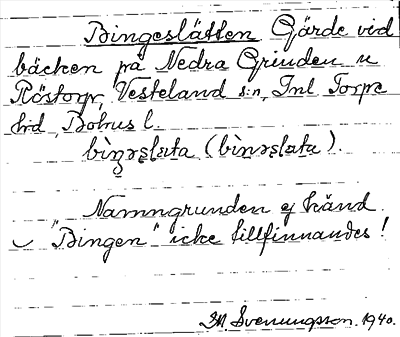 Bingeslätten Gärde vid
bäcken på Nedra Grinden u
Röstorp, Västerland s:n, Inl Torpe
hd, Bohus l.
bìŋəslæta (bìŋəslæta).
Namngrunden ej känd.
"Bingen" icke tillfinnandes!
M. Svenungsson. 1940.